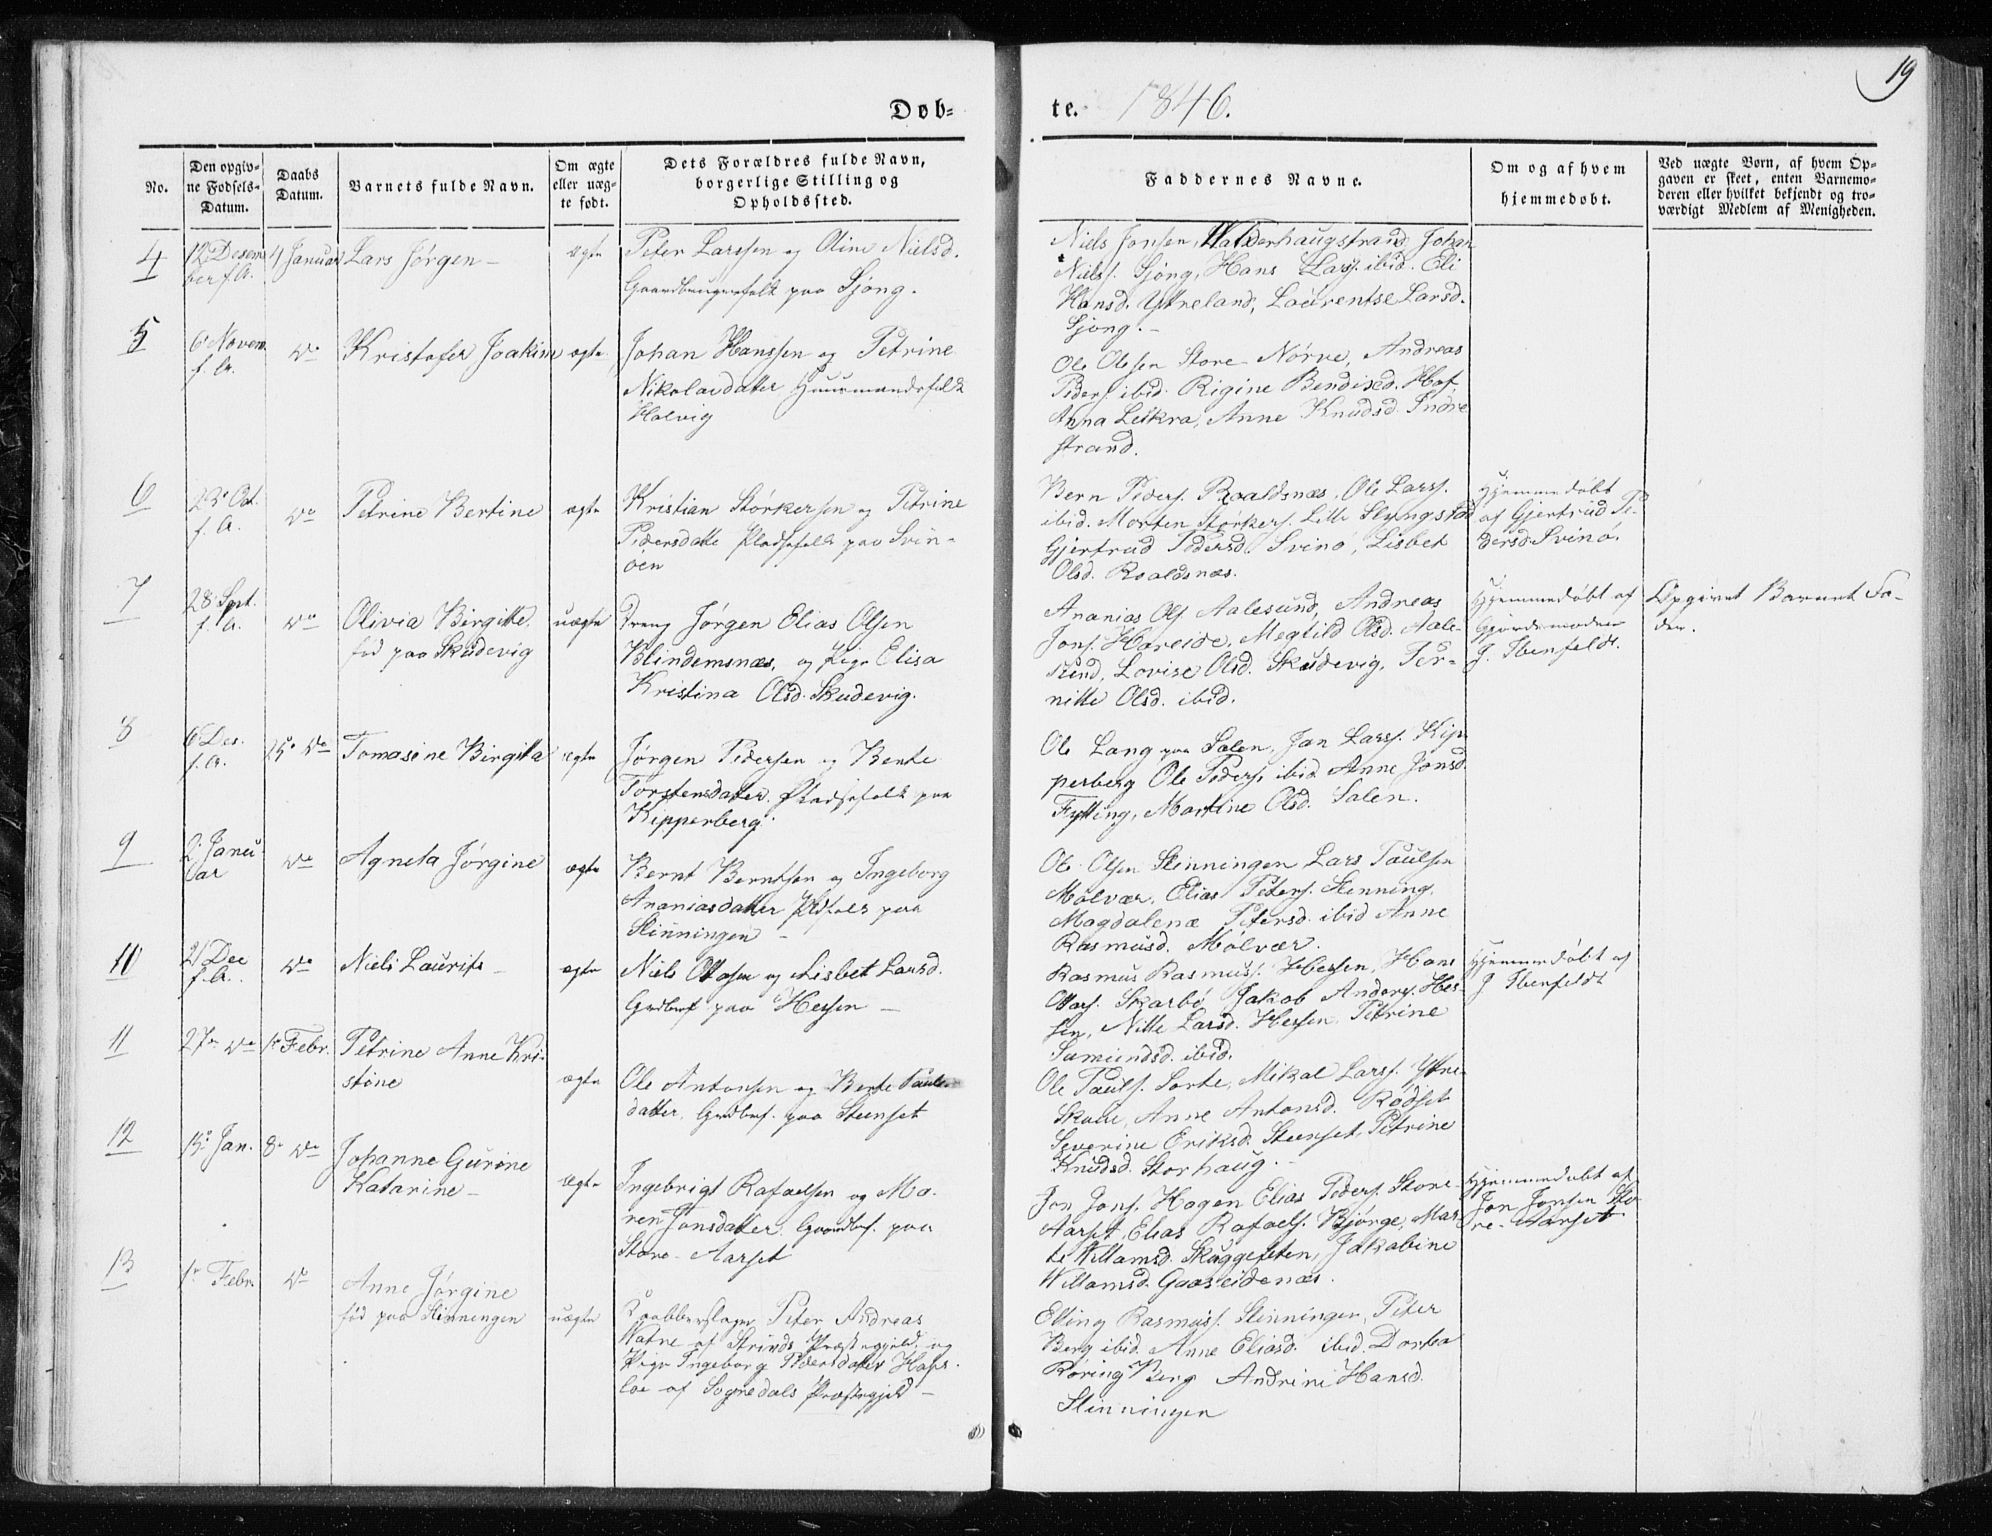 19
Døb=
te. 1846.
No.
Den opgiv-
ne Fødsels-
Datum.
Daabs
Datum.
Barnets fulde Navn.
Om ægte
eller uæg-
te født.
Dets Forældres fulde Navn,
borgerlige Stilling og
Opholdssted.
Faddernes Navne.
Om og af hvem
hjemmedøbt.
Ved uægte Børn, af hvem Op-
gaven er skeet, enten Barnemo-
deren eller hvilket bekjendt og tro-
værdigt Medlem af Menigheden.
4
12 Desem
ber f. A.
4 Januar
Lars Jørgen -
ægte
Peter Larssen og Oline Nielsd.
Gaardbrugerfolk paa Sjong.
Niels Jonsen, Valderhaugstrand, Johan
Niels. Sjong, Hans Lars. ibid. Eli
Hansd. Ytreland, Laurentse Larsd.
Sjong. -
5
6 Novem
f. A.
do
Kristofer Joakim
ægte
Johan Hanssen og Petrine
Nikolaidatter Huusmandsfolk
Holvig
Ole Olsen Store-Nørve, Andreas
Peders. ibid. Rigine Bendixd. Hof,
Anna Leikra, Anne Knudsd. Indre
strand.
6
23 Oct.
f. A.
do
Petrine Bertine
ægte
Kristian Størkersen og Petrine
Pedersdatte Pladsefolk paa Svin-
øen
Bern Peders. Roaldsnæs, Ole Lars.
ibid. Morten Størkers. Lille Slyngstad
Gjertrud Pedersd. Svinø, Lisbet
Olsd. Roaldsnæs.
Hjemmedøbt
af Gjertrud Pe-
dersd. Svinø.
7
28 Sept.
f. A.
do
Olivia Birgitte,
fød paa Skudevig
uægte
Dreng Jørgen Elias Olsen
Blindemsnæs, og Pige Elisa
Kristina Olsd. Skudevig.
Ananias Ols. Aalesund, Andreas
Jons. Hareide, Megtild Olsd. Aale-
sund, Lovise Olsd. Skudevig, Per-
nille Olsd. ibid.
Hjemmedøbt af
Gjordemoder
J. Ibenfeldt.
Opgivet Barnets Fa-
der.
8
6 Des.
f. A.
25 do
Tomasine Birgitta
ægte
Jørgen Pedersen og Bente
Torstensdatter Pladsefolk paa
Kipperberg.
Ole Lang paa Salen, Jan Lars. Kip-
perberg Ole Peders. ibid Anne Jonsd.
Fylling, Martine Olsd. Salen.
9
2 Janu-
ar
do
Agneta Jørgine
ægte
Bernt Berntsen og Ingeborg
Ananiasdatter Pldsfolk paa
Slinningen -
Ole Olsen Slinningen Lars Paulsen
Molvær, Elias Peters. Slinning,
Magdalena Petersd. ibid Anne
Rasmusd. Molvær.
10
21 Dec
f. A.
do
Niels Laurits -
ægte
Niels Ottosen og Lisbet Larsd.
Grdbrf paa Hessen -
Rasmus Rasmuss. Hessen, Hans
Ottos. Skarbø Jakob Anders. Hes-
sen, Nille Larsd. Hessen, Petrine
ibid.
Hjemmedøbt af
J. Ibenfeldt
11
27 do
1 Febr.
Petrine Anne Kri-
stine
ægte
Ole Antonsen og Berte Pauls-
datter, Grdbrf. paa Steenset
Ole Pauls. Sorte, Mikal Lars. Ytre-
Skaue, Anne Antonsd. Rødset
Severine Eriksd. Steenset, Petrine
Knudsd. Storhaug. -
12
13 Jan.
8 do
Johanne Gurine
Katarine -
ægte
Ingebrigt Rafaelsen og Ma-
ren Jonsdatter Gaardbrf. paa
Store-Aarset
Jon Jons. Hagen Elias Peders. Store-
Aarset, Elias Rafaels. Bjørge, Mar-
te Willamsd. Skuggefeten, Jakobine
Willamsd. Gaaseidenæs.
Hjemmedøbt af
Jon Jonsen Sto-
re-Aarset
13
1 Febr.
do
Anne Jørgine
fød paa Slinningen
uægte
Kaabberslager Peter Andreas
Watne af Strinds Præstegjeld, og
Pige Ingeborg Pedersdatter Hafs-
loe af Sognedals Præstegjeld -
Elling Rasmuss. Slinningen, Peter
Berg ibid. Anne Eliasd. ibid. Dortea
Røring Berg Andrine Hansd.
Slinningen